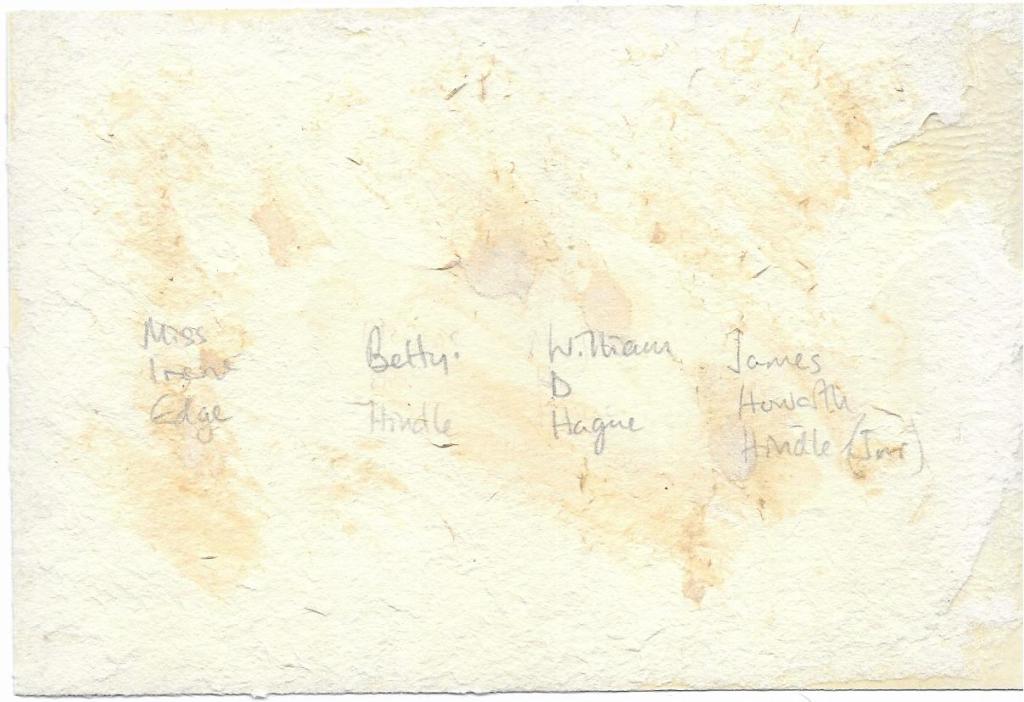 Miss
Irene
Edge
Betty
Hindle
William
D
Hague
James
Howarth
Hindle (Jnr)